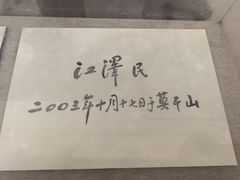 江澤民
二〇〇三年十月十七日于莫干山